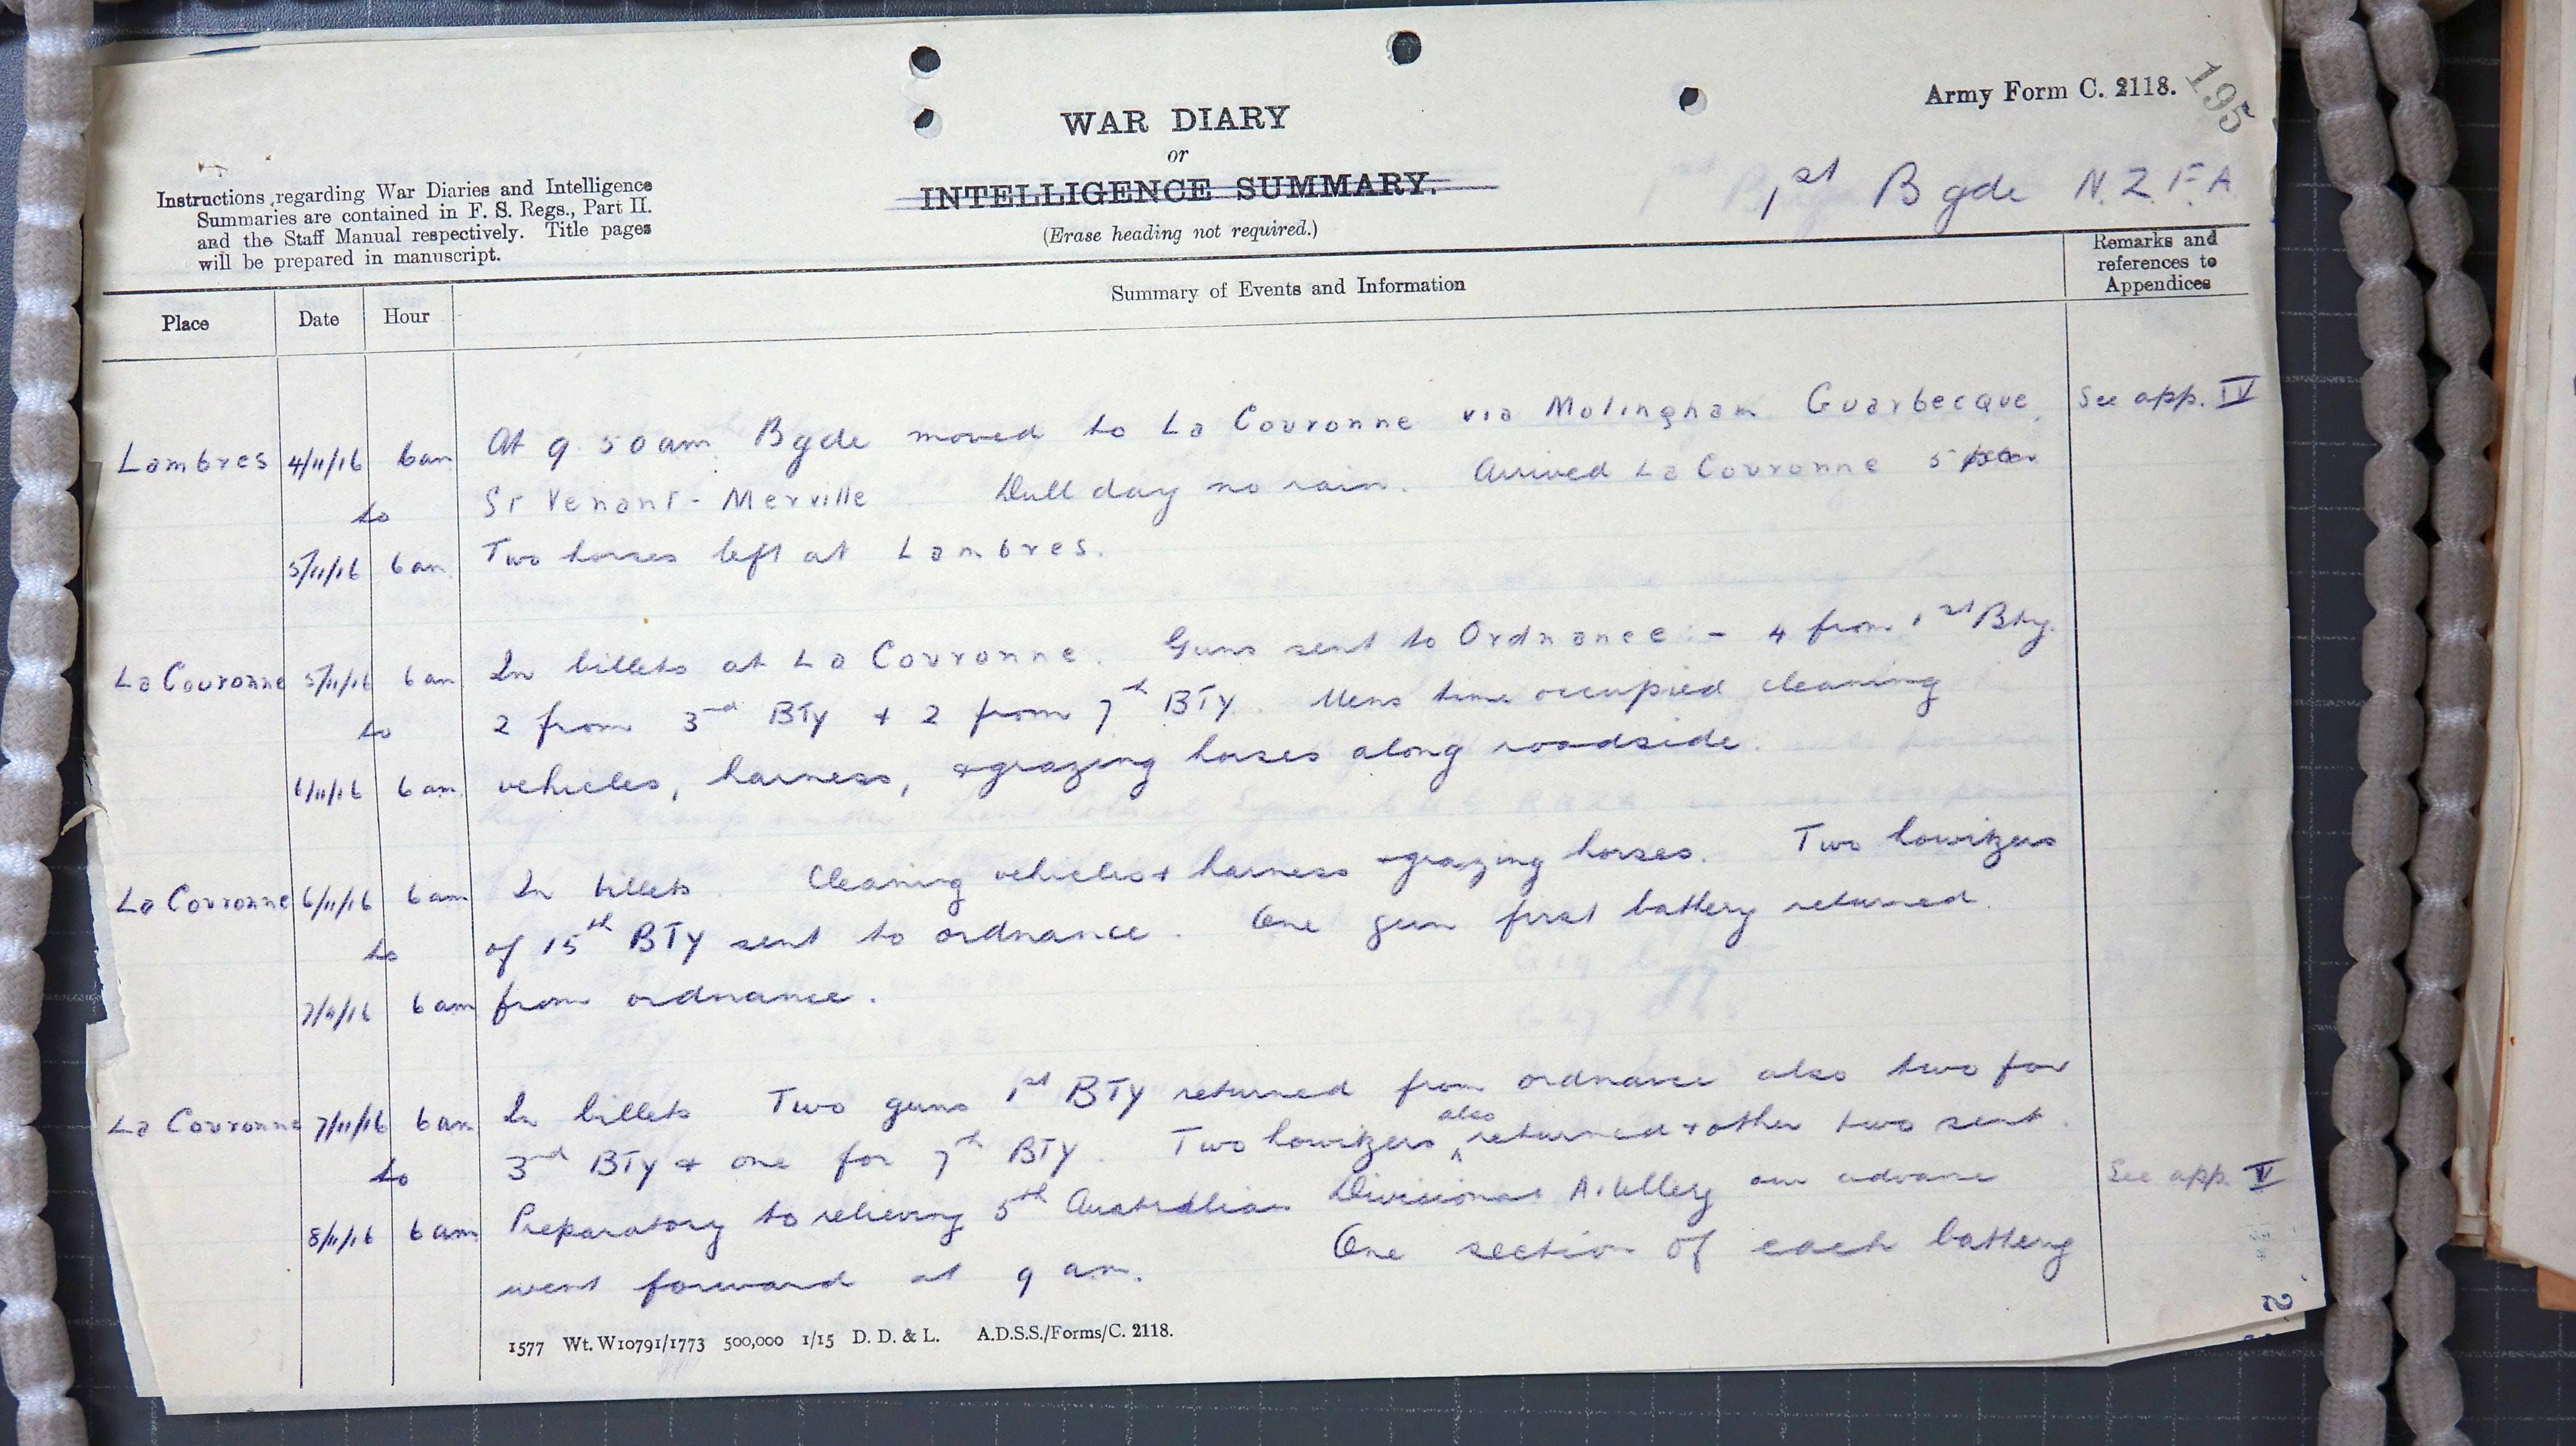 Army Form C. 2118.
195
WAR DIARY
or
INTELLIGENCE SUMMARY.
(Erase heading not required.)
Instructions regarding War Diaries and Intelligence
Summaries are contained in F. S. Regs., Part II.
and the Staff Manual respectively. Title pages
will be prepared in manuscript.
1st Bgde N.Z.F.A
Place Date Hour Summary of Events and Information Remarks and
references to
Appendices
Lambres 4/11/16 6am At 9.50am Bgde moved to La Couronne via Molingham Guarbecque, See app. IV
to St Venant - Merville Dull day no rain. Arrived La Couronne 5
5/11/16 6am Two horses left at Lambres.
La Couronne 5/11/16 6am In billets at La Couronne. Guns sent to Ordnance :- 4 from 1st Bty.
to 2 from 3rd BTY + 2 from 7th BTY. Mens time occupied cleaning
6/11/16 6am vehicles, harness, + grazing horses along roadside.
La Couronne 6/11/16 6am In billets. Cleaning vehicles + harness + grazing horses. Two howitzers
to of 15th BTY sent to ordnance. One gun first battery returned
7/11/16 6am from ordnance.
La Couronne 7/11/16 6am In billets Two guns 1st BTY returned from ordnance also two for
to 3rd BTY + one for 7th BTY. Two howitzers also returned + other two sent.
8/11/16 6am Preparatory to relieving 5th Australian Divisional Artillery an advance See app. V
went forward at 9 am. One section of each battery
1577 Wt. W10791/1773 500,000 1/15 D. D. & L. A.D.S.S./Forms/C. 2118.
2